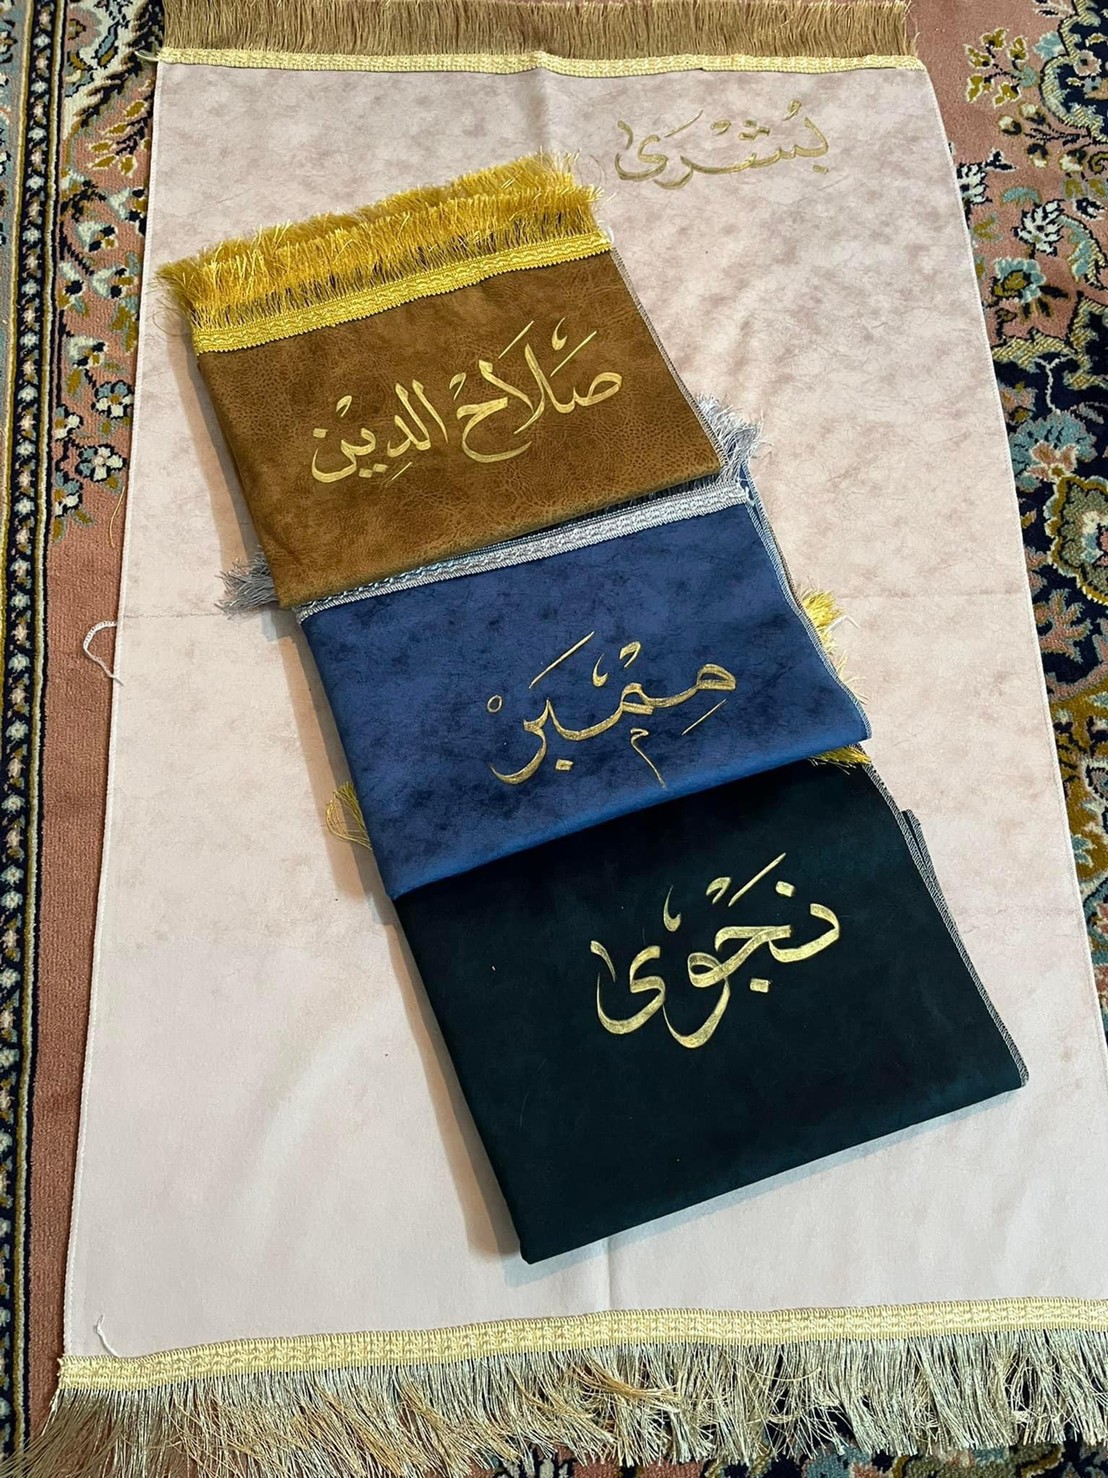 بُشْرَى
صَلَاحْ الدِيْن
نَجْوَى